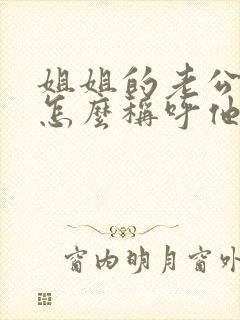 姐姐的老公
怎麼稱呼他
窗内明月窗外